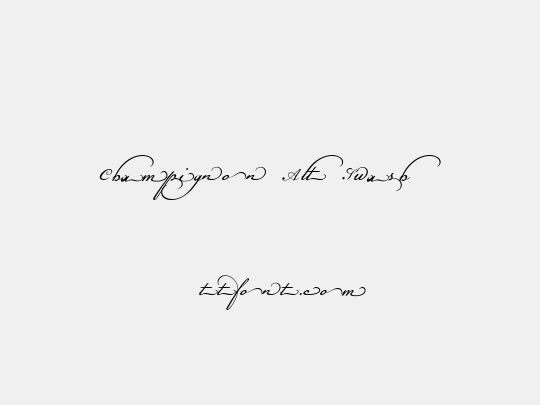 Champignon Alt Swash
ttfont.com